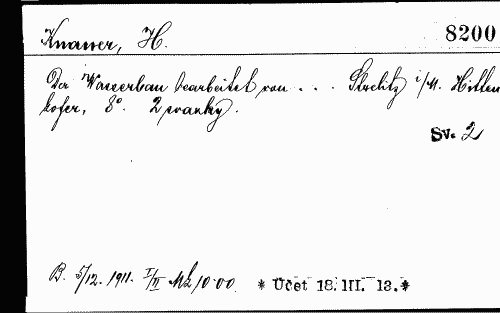 Knauer, H. 8200
Der Wasserbau bearbeitet von . . . Strelitz i/M. Hitten
kofer, 8°. 2 svazky.
Sv. 2
B. 5/12. 1911. I/II Mk 10·00 * Účet 18. III. 13. *